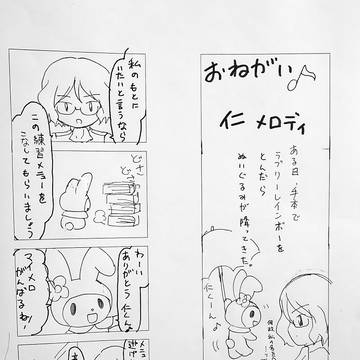 おねがい♪
仁 メロディ
ある日、手本で
ラブリーレインボーを
とんだら
ぬいぐるみが降ってきた。
仁くーん♪
私のもとに
いたいと言うなら
この練習メニューを
こなしてもらいましょう
どさ
どさ
わーい
ありがとう仁くん
マイメロ
がんばるね!